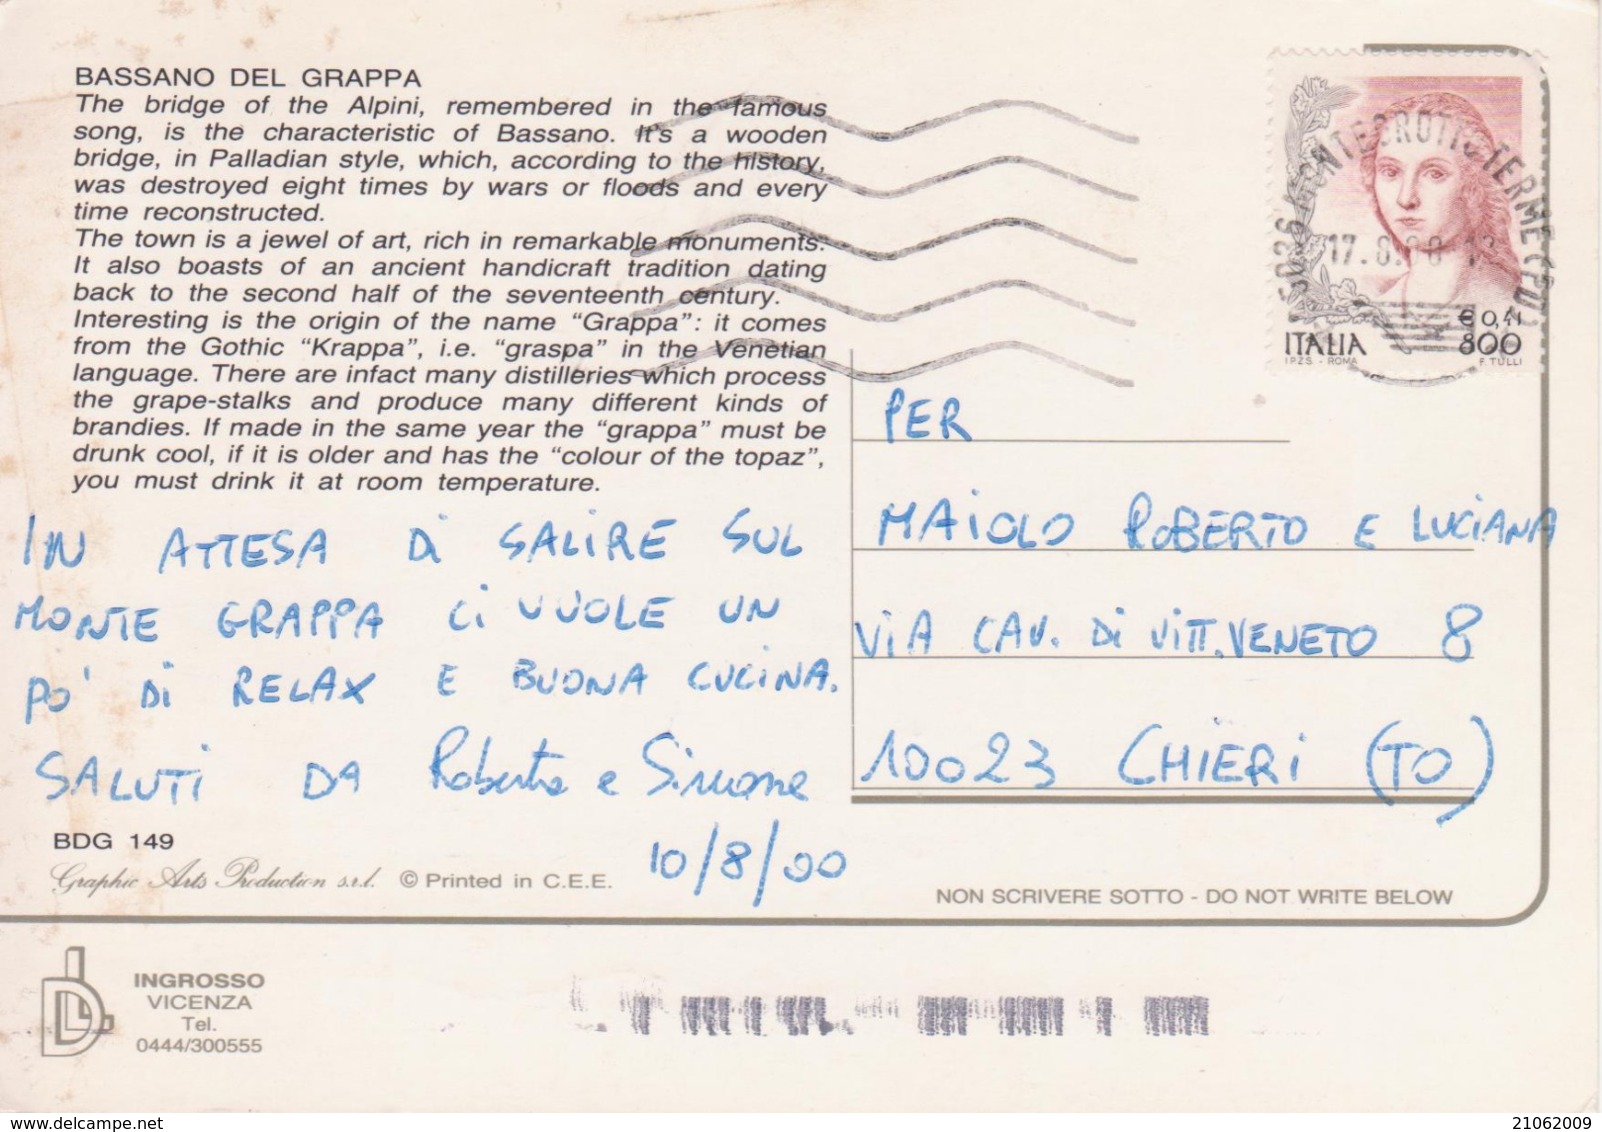 BASSANO DEL GRAPPA
The bridge of the Alpini, remembered in the famous
song, is the characteristic of Bassano. It's a wooden
bridge, in Palladian style, which, according to the history,
was destroyed eight times by wars or floods and every
time reconstructed.
The town is a jewel of art, rich in remarkable monuments.
It also boasts of an ancient handicraft tradition dating
back to the second half of the seventeenth century.
Interesting is the origin of the name “Grappa”: it comes
from the Gothic “Krappa”, i.e. “graspa” in the Venetian
language. There are infact many distilleries which process
the grape-stalks and produce many different kinds of
brandies. If made in the same year the “grappa” must be
drunk cool, if it is older and has the “colour of the topaz”,
you must drink it at room temperature.
IN ATTESA DI SALIRE SUL
MONTE GRAPPA CI VUOLE UN
PO' DI RELAX E BUONA CUCINA.
SALUTI DA Roberta e Simone
10/8/00
BDG 149
Graphic Arts Production s.r.l. © Printed in C.E.E.
MONTEGROTTO TERME (PD)
€ 0,41
ITALIA 800
I.P.Z.S. - ROMA F. TULLI
PER
MAIOLO ROBERTO E LUCIANA
VIA CAV. DI VITT. VENETO 8
10023 CHIERI (TO)
NON SCRIVERE SOTTO - DO NOT WRITE BELOW
INGROSSO
VICENZA
Tel.
0444/300555
21062009